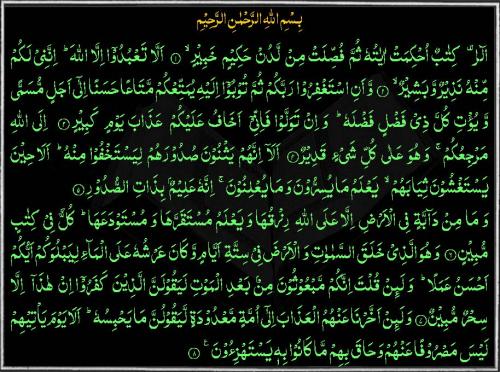 بِسْمِ اللهِ الرَّحْمٰنِ الرَّحِيْمِ
الٓرٰ ۚ كِتٰبٌ اُحْكِمَتْ اٰيٰتُهٗ ثُمَّ فُصِّلَتْ مِنْ لَّدُنْ حَكِيْمٍ خَبِيْرٍ ۙ ﴿۱﴾ اَلَّا تَعْبُدُوْۤا اِلَّا اللهَ ؕ اِنَّنِيْ لَكُمْ
مِّنْهُ نَذِيْرٌ وَّبَشِيْرٌ ۙ ﴿۲﴾ وَّاَنِ اسْتَغْفِرُوْا رَبَّكُمْ ثُمَّ تُوْبُوْۤا اِلَيْهِ يُمَتِّعْكُمْ مَّتَاعًا حَسَنًا اِلٰۤى اَجَلٍ مُّسَمًّى
وَّيُؤْتِ كُلَّ ذِيْ فَضْلٍ فَضْلَهٗ ؕ وَاِنْ تَوَلَّوْا فَاِنِّيْۤ اَخَافُ عَلَيْكُمْ عَذَابَ يَوْمٍ كَبِيْرٍ ﴿۳﴾ اِلَى اللهِ
مَرْجِعُكُمْ ۚ وَهُوَ عَلٰى كُلِّ شَيْءٍ قَدِيْرٌ ﴿۴﴾ اَلَاۤ اِنَّهُمْ يَثْنُوْنَ صُدُوْرَهُمْ لِيَسْتَخْفُوْا مِنْهُ ؕ اَلَا حِيْنَ
يَسْتَغْشُوْنَ ثِيَابَهُمْ ۙ يَعْلَمُ مَا يُسِرُّوْنَ وَمَا يُعْلِنُوْنَ ۚ اِنَّهٗ عَلِيْمٌۢ بِذَاتِ الصُّدُوْرِ ﴿۵﴾
وَمَا مِنْ دَآبَّةٍ فِي الْاَرْضِ اِلَّا عَلَى اللهِ رِزْقُهَا وَيَعْلَمُ مُسْتَقَرَّهَا وَمُسْتَوْدَعَهَا ؕ كُلٌّ فِيْ كِتٰبٍ
مُّبِيْنٍ ﴿۶﴾ وَهُوَ الَّذِيْ خَلَقَ السَّمٰوٰتِ وَالْاَرْضَ فِيْ سِتَّةِ اَيَّامٍ وَّكَانَ عَرْشُهٗ عَلَى الْمَآءِ لِيَبْلُوَكُمْ اَيُّكُمْ
اَحْسَنُ عَمَلًا ؕ وَلَئِنْ قُلْتَ اِنَّكُمْ مَّبْعُوْثُوْنَ مِنْۢ بَعْدِ الْمَوْتِ لَيَقُوْلَنَّ الَّذِيْنَ كَفَرُوْۤا اِنْ هٰذَاۤ اِلَّا
سِحْرٌ مُّبِيْنٌ ﴿۷﴾ وَلَئِنْ اَخَّرْنَا عَنْهُمُ الْعَذَابَ اِلٰۤى اُمَّةٍ مَّعْدُوْدَةٍ لَّيَقُوْلُنَّ مَا يَحْبِسُهٗ ؕ اَلَا يَوْمَ يَاْتِيْهِمْ
لَيْسَ مَصْرُوْفًا عَنْهُمْ وَحَاقَ بِهِمْ مَّا كَانُوْا بِهٖ يَسْتَهْزِءُوْنَ ۠ ﴿۸﴾